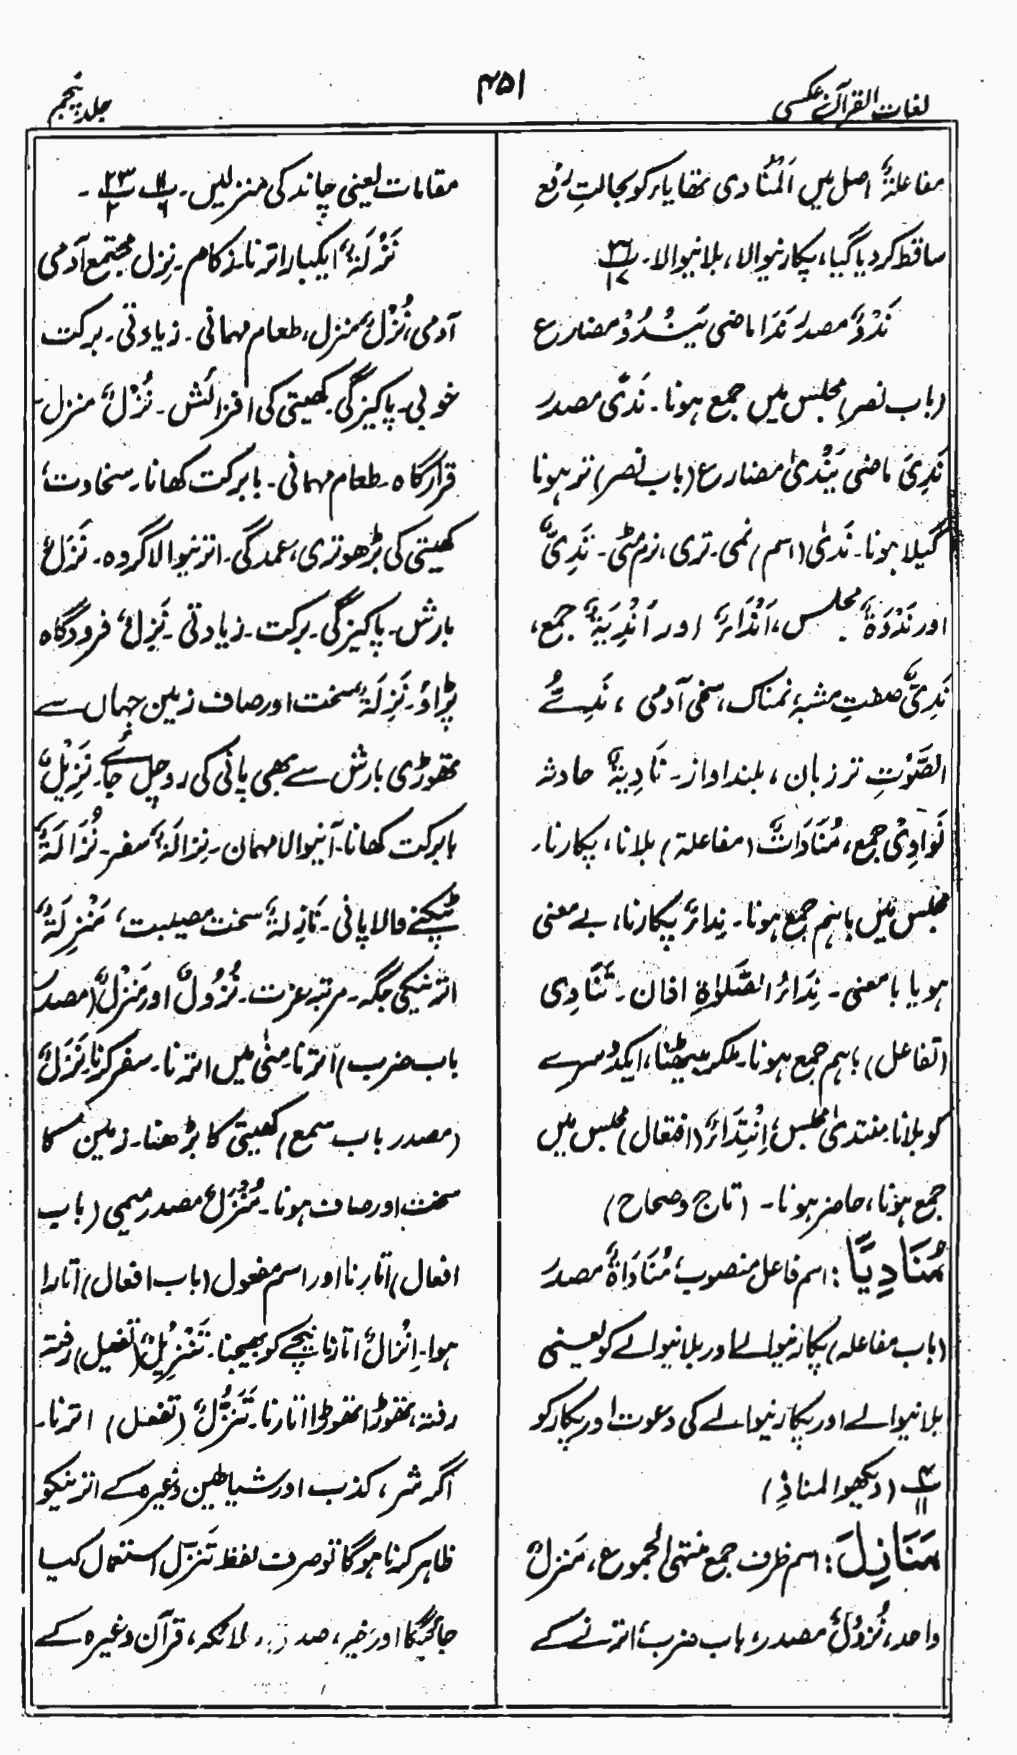 لغات القرآن عکسی
۴۵۱
جلد پنجم
مفاعلۃٌ اصل میں اَلْمُنَادی تھا یاء کو بحالتِ رفع
ساقط کردیا گیا، پکارنیوالا، بلانیوالا۔ پ۲۶/۱۷
نَدْوٌ مصدر نَدَا ماضی یَنْدُوْ مضارع
(باب نصر) مجلس میں جمع ہونا۔ نَدًی مصدر
نَدِیَ ماضی یَنْدیٰ مضارع (باب نصر) تر ہونا
گیلا ہونا۔ نَدیٰ (اسم) نمی۔ تری، نرم مٹی۔ نَدِیٌّ
اور نَدْوَۃٌ مجلس، اَنْدَاءٌ اور اَنْدِیَۃٌ جمع،
نَدِیٌّ صفتِ مشبہ، نمناک، سخی آدمی، نَدِیُّ
الصَّوْتِ تر زبان، بلند اواز۔ نَادِیَۃٌ حادثہ
نَوَادِیْ جمع، مُنَادَاتٌ (مفاعلۃ) بلانا، پکارنا۔
مجلس میں باہم جمع ہونا۔ نِدَاءٌ پکارنا، بے معنی
ہو یا با معنی۔ نِدَاءُ الصَّلوٰۃِ اذان۔ تَنَادِی
(تفاعل) باہم جمع ہونا۔ ملکر بیٹھنا، ایکدوسرے
کو بلانا۔ منتدیٰ مجلس، اِنْتِدَاءٌ (افتعال) مجلس میں
جمع ہونا، حاضر ہونا۔ (تاج و صحاح)
مُنَادِیًا: اسم فاعل منصوب، مُنَادَاۃٌ مصدر
(باب مفاعلہ) پکارنیوالے اور بلانیوالے کو یعنی
بلانیوالے اور پکارنیوالے کی دعوت اور پکار کو
پ۴/۱۱ (دیکھو المنادِ)
مَنَازِلَ: اسم ظرف جمع منتہی الجموع، مَنزِلٌ
واحد، نُزُوْلٌ مصدر، باب ضرب، اترنے کے
مقامات یعنی چاند کی منزلیں۔ پ۱۱/۶ پ۲۳/۲۔
نَزْلَۃٌ ایکبار اترنا۔ زکام۔ نِزل مجتمع آدمی
آدمی، نُزْلٌ منزل، طعام مہمانی۔ زیادتی۔ برکت
خوبی۔ پاکیزگی۔ کھیتی کی افزائش۔ نُزُلٌ منزل۔
قرارگاہ۔ طعام مہمانی۔ بابرکت کھانا۔ سخاوت،
کھیتی کی بڑھوتری، عمدگی۔ اترنیوالا گروہ۔ نَزَلٌ
بارش۔ پاکیزگی۔ برکت۔ زیادتی۔ نَزِلٌ فرودگاہ
پڑاؤ۔ نَزِلَۃٌ سخت اور صاف زمین جہاں سے
تھوڑی بارش سے بھی پانی کی رو چل جائے۔ نَزِیْلٌ
بابرکت کھانا۔ آنیوالا مہمان۔ نِزَالَۃٌ سفر۔ نُزَالَۃٌ
ٹپکنے والا پانی۔ نَازِلۃٌ سخت مصیبت، مَنْزِلَۃٌ
اترنیکی جگہ۔ مرتبہ عزت۔ نُزُولٌ اور مَنْزِلٌ (مصدر
باب ضرب) اترنا۔ منیٰ میں اترنا۔ سفر کرنا۔ نَزَلٌ
(مصدر باب سمع) کھیتی کا بڑھنا۔ زمین کا
سخت اور صاف ہونا۔ مُنْزَلٌ مصدر میمی (باب
افعال) اتارنا اور اسم مفعول (باب افعال) اتارا
ہوا۔ اِنْزَالٌ اتارنا نیچے کو بھیجنا۔ تَنْزِیْلٌ (تفعیل) رفتہ
رفتہ، تھوڑا تھوڑا اتارنا۔ تَنَزُّلٌ (تفعل) اترنا۔
اگر شر، کذب اور شیاطین وغیرہ کے اترنیکو
ظاہر کرنا ہوگا تو صرف لفظ تَنَزَّل استعمال کیا
جائیگا اور خیر، صدق، ملائکہ، قرآن وغیرہ کے